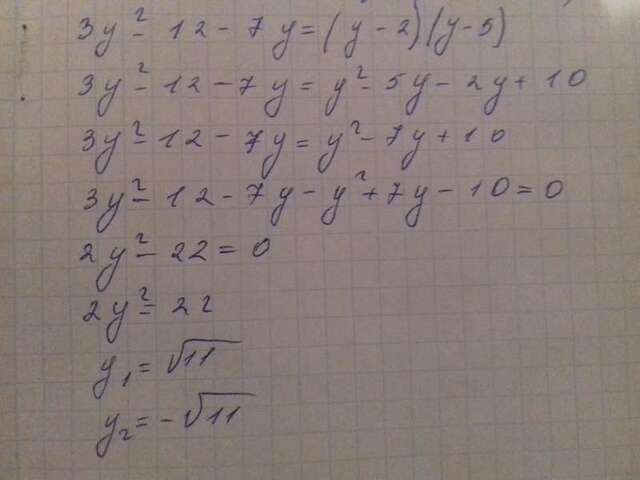 3y² - 12 - 7y = (y - 2)(y - 5)
3y² - 12 - 7y = y² - 5y - 2y + 10
3y² - 12 - 7y = y² - 7y + 10
3y² - 12 - 7y - y² + 7y - 10 = 0
2y² - 22 = 0
2y² = 22
y₁ = √11
y₂ = -√11